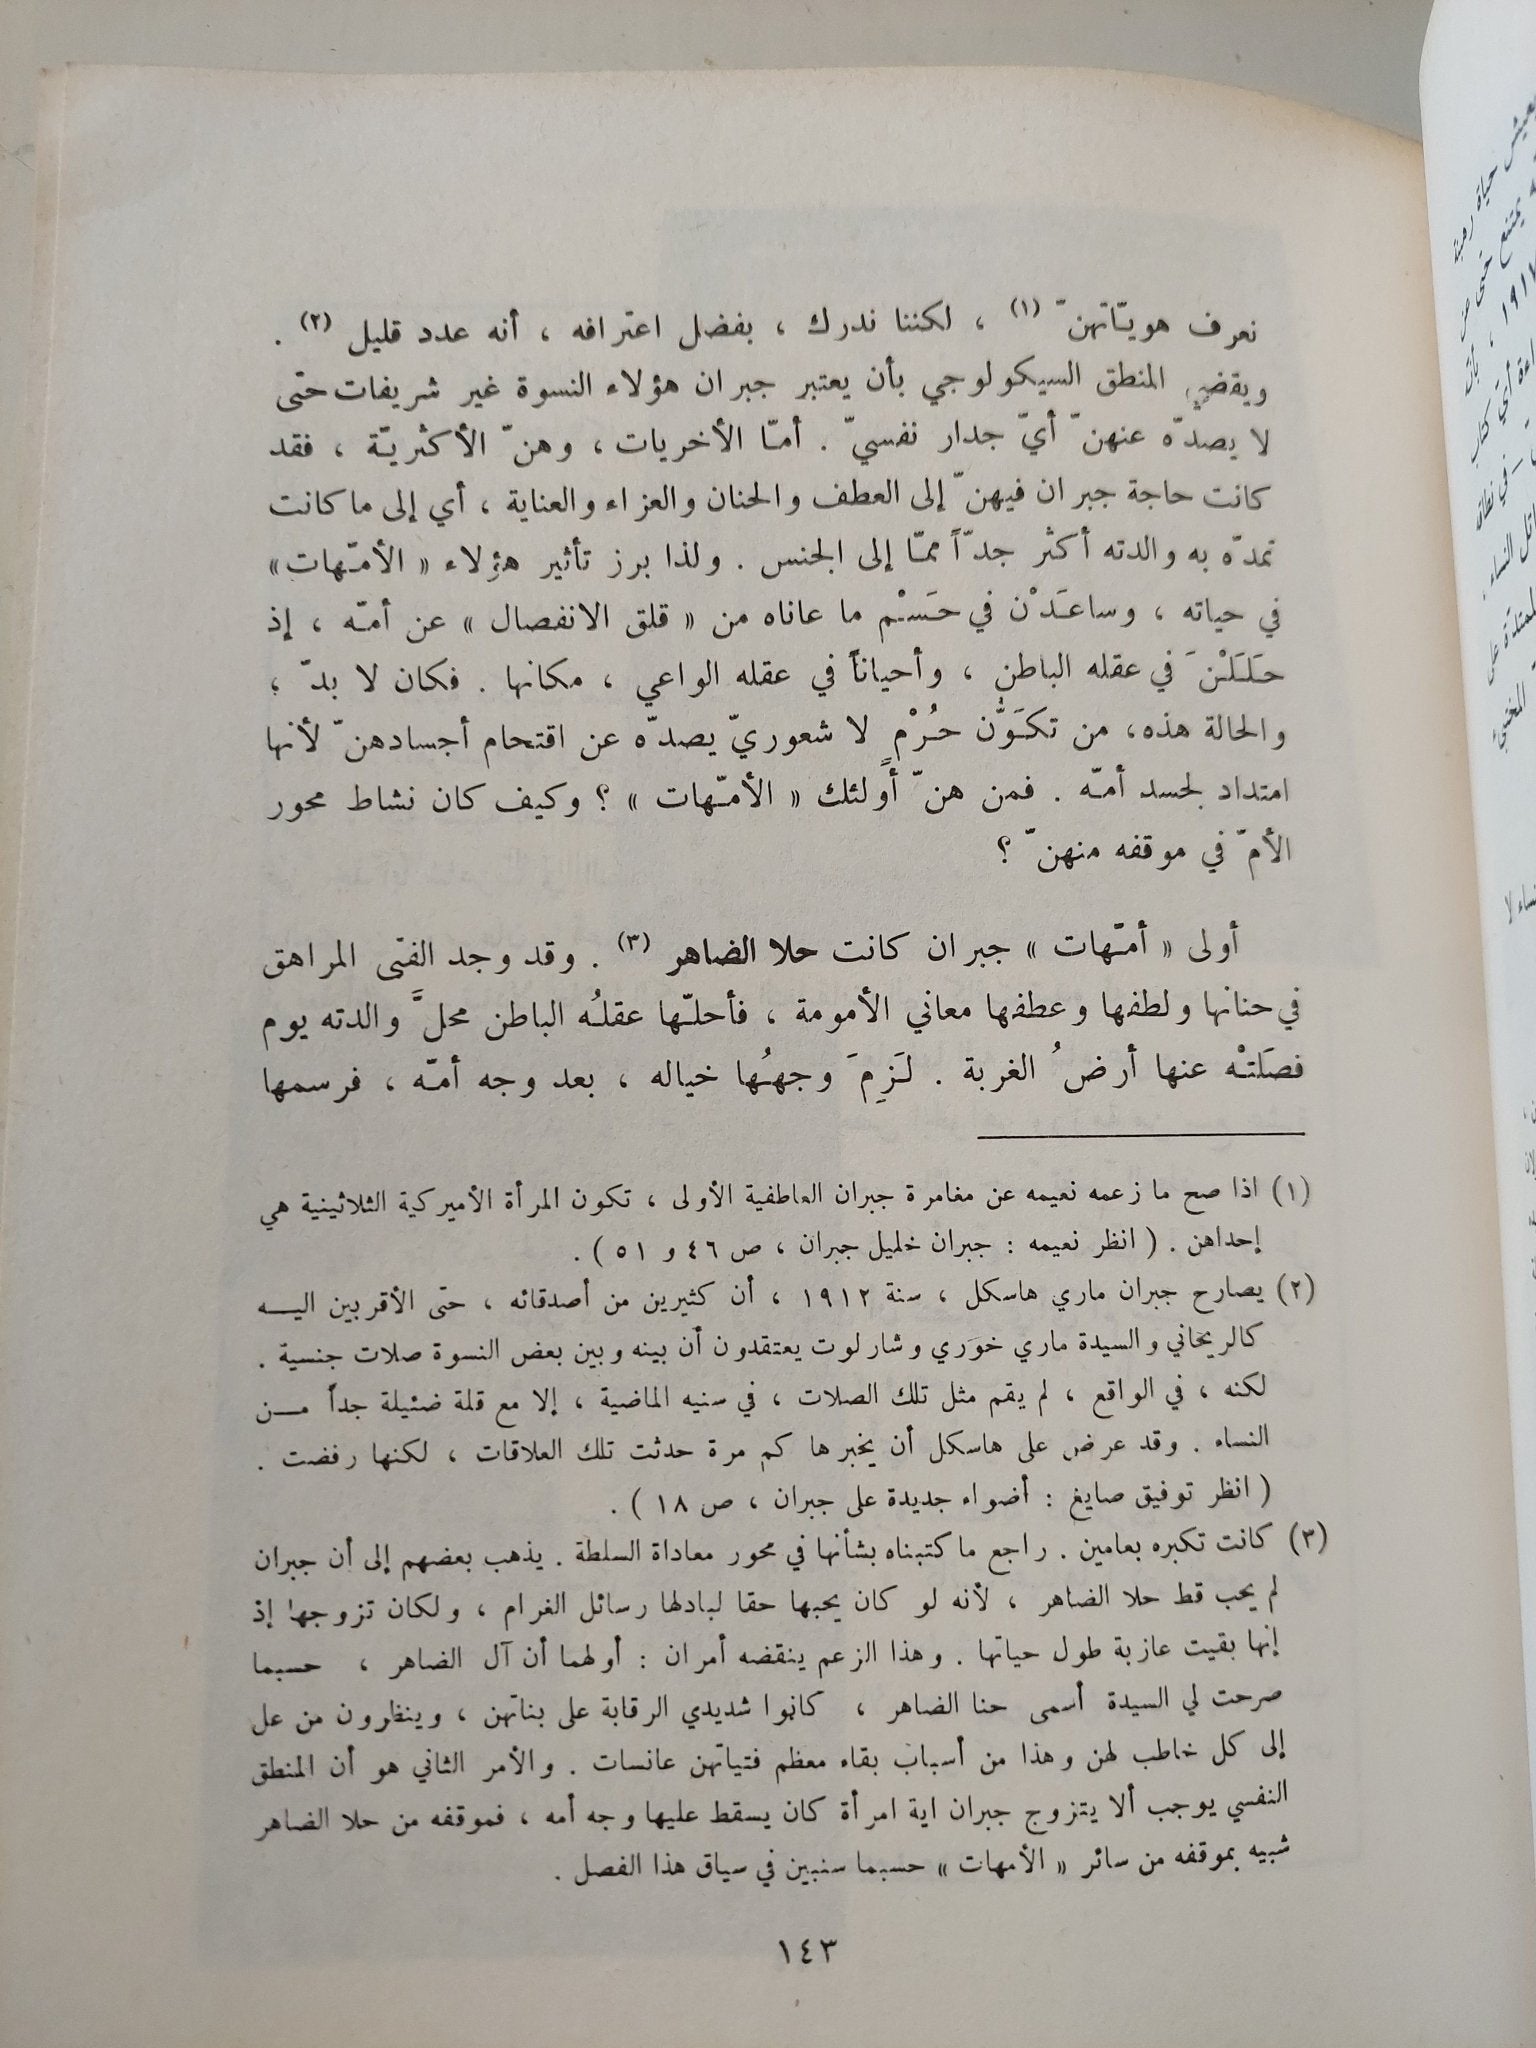 نعرف هويّاتهنّ (١) ، لكننا ندرك ، بفضل اعترافه ، أنه عدد قليل (٢) .
ويقضي المنطق السيكولوجي بأن يعتبر جبران هؤلاء النسوة غير شريفات حتّى
لا يصدّه عنهنّ أيّ جدار نفسيّ . أمّا الأخريات ، وهنّ الأكثريّة ، فقد
كانت حاجة جبران فيهنّ إلى العطف والحنان والعزاء والعناية ، أي إلى ما كانت
تمدّه به والدته أكثر جدّاً ممّا إلى الجنس . ولذا برز تأثير هؤلاء « الأمّهات »
في حياته ، وساعَدْن في حَسْم ما عاناه من « قلق الانفصال » عن أمّه ، إذ
حَلَلْنَ في عقله الباطن ، وأحياناً في عقله الواعي ، مكانها . فكان لا بدّ ،
والحالة هذه ، من تكَوُّن حُرْمٍ لا شعوريّ يصدّه عن اقتحام أجسادهنّ لأنها
امتداد لجسد أمّه . فمن هنّ أولئك « الأمّهات » ؟ وكيف كان نشاط محور
الأمّ في موقفه منهنّ ؟
أولى « أمّهات » جبران كانت حلا الضاهر (٣) . وقد وجد الفتى المراهق
في حنانها ولطفها وعطفها معاني الأمومة ، فأحلّها عقلُه الباطن محلَّ والدته يوم
فصَلتْه عنها أرضُ الغربة . لَزِمَ وجهُها خياله ، بعد وجه أمّه ، فرسمها
(١) اذا صح ما زعمه نعيمه عن مغامرة جبران العاطفية الأولى ، تكون المرأة الأميركية الثلاثينية هي
إحداهن . ( انظر نعيمه : جبران خليل جبران ، ص ٤٦ و ٥١ ) .
(٢) يصارح جبران ماري هاسكل ، سنة ١٩١٢ ، أن كثيرين من أصدقائه ، حتى الأقربين اليه
كالريحاني والسيدة ماري خوري وشارلوت يعتقدون أن بينه وبين بعض النسوة صلات جنسية .
لكنه ، في الواقع ، لم يقم مثل تلك الصلات ، في سنيه الماضية ، إلا مع قلة ضئيلة جداً من
النساء . وقد عرض على هاسكل أن يخبرها كم مرة حدثت تلك العلاقات ، لكنها رفضت .
( انظر توفيق صايغ : أضواء جديدة على جبران ، ص ١٨ ) .
(٣) كانت تكبره بعامين . راجع ما كتبناه بشأنها في محور معاداة السلطة . يذهب بعضهم إلى أن جبران
لم يحب قط حلا الضاهر ، لأنه لو كان يحبها حقا لبادلها رسائل الغرام ، ولكان تزوجها إذ
إنها بقيت عازبة طول حياتها . وهذا الزعم ينقضه أمران : أولهما أن آل الضاهر ، حسبما
صرحت لي السيدة أسمى حنا الضاهر ، كانوا شديدي الرقابة على بناتهن ، وينظرون من عل
إلى كل خاطب لهن وهذا من أسباب بقاء معظم فتياتهن عانسات . والأمر الثاني هو أن المنطق
النفسي يوجب ألا يتزوج جبران اية امرأة كان يسقط عليها وجه أمه ، فموقفه من حلا الضاهر
شبيه بموقفه من سائر « الأمهات » حسبما سنبين في سياق هذا الفصل .
١٤٣